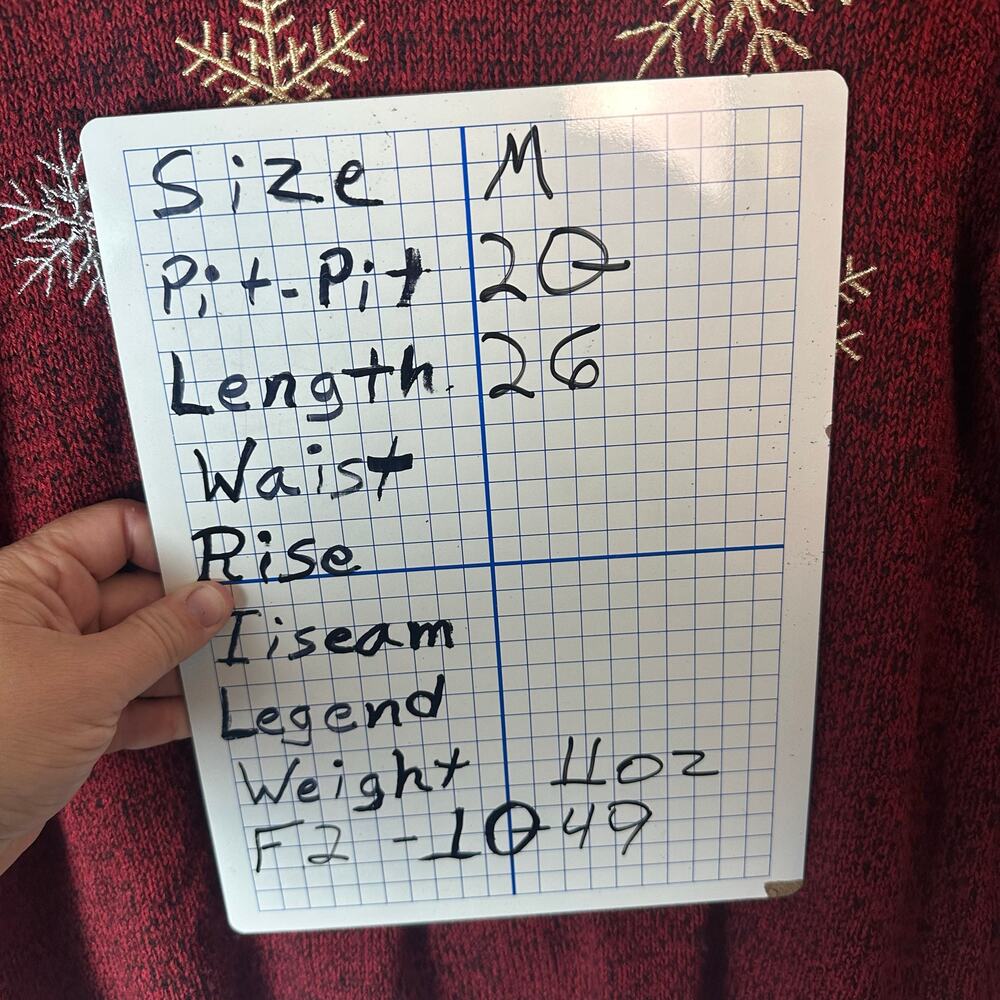 Size M
Pit-Pit 20
Length. 26
Waist
Rise
Iiseam
Legend
Weight 11oz
F2 -1049